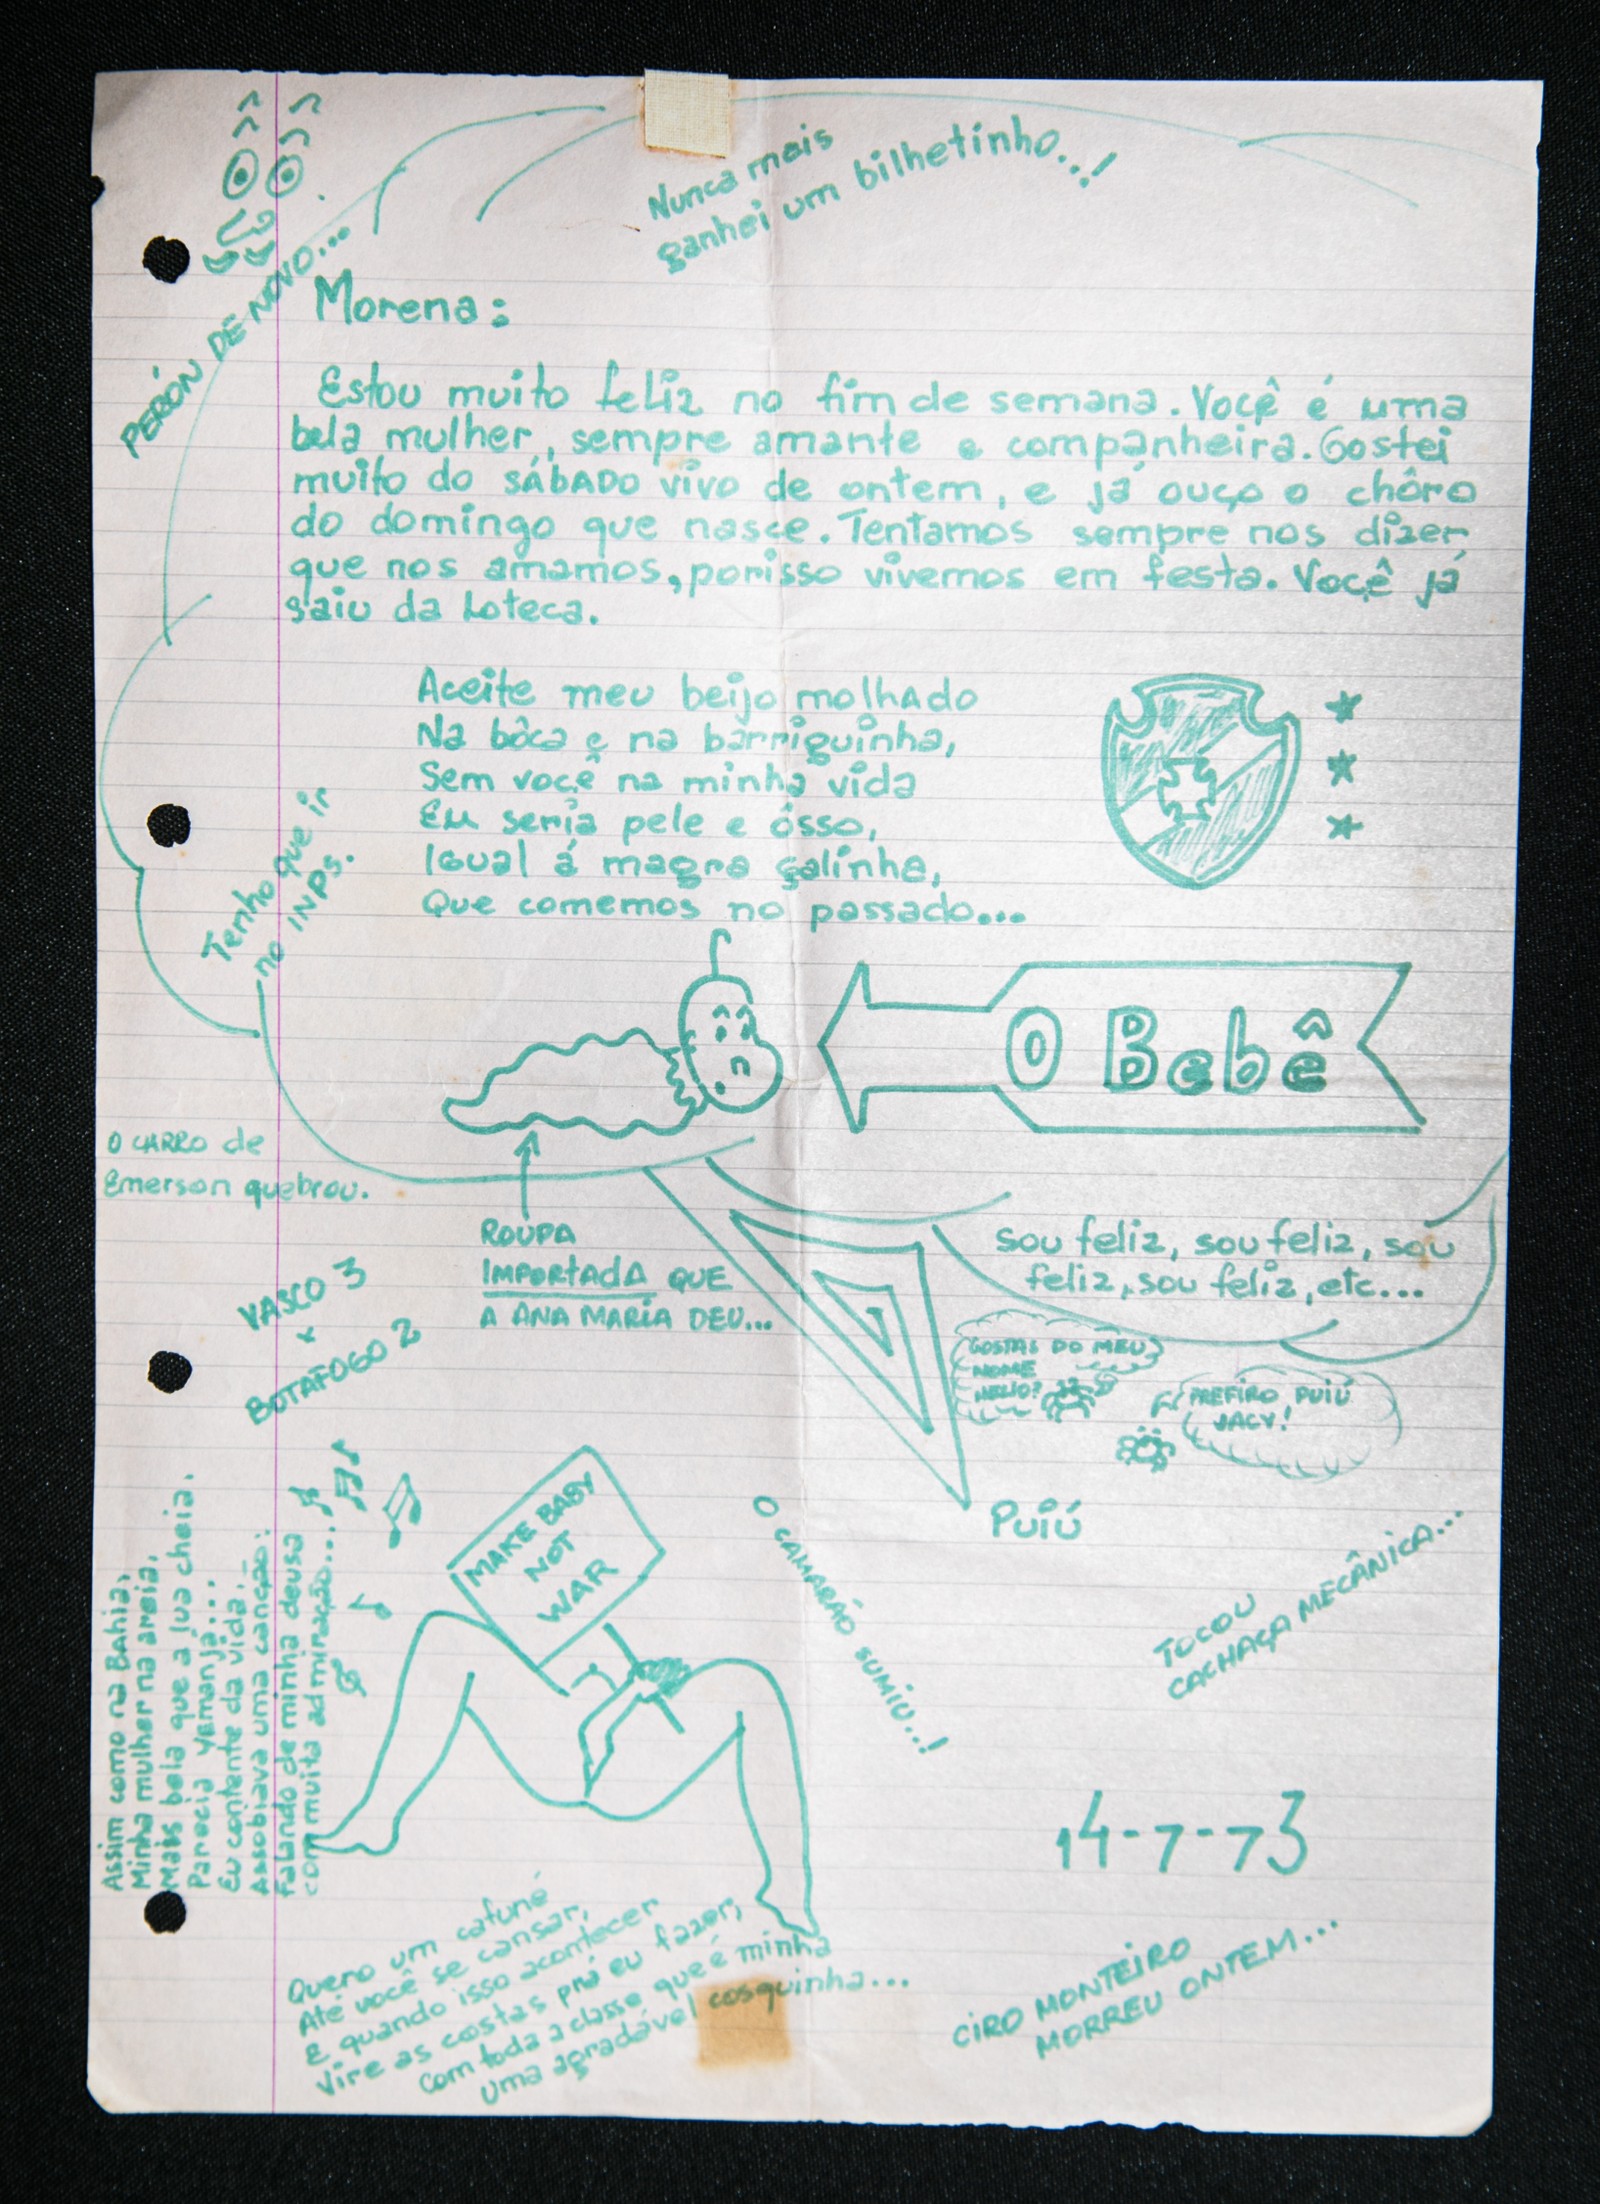 Nunca mais
ganhei um bilhetinho..!
PERÓN DE NOVO...
Morena:
Estou muito feliz no fim de semana. Você é uma
bela mulher, sempre amante e companheira. Gostei
muito do SÁBADO vivo de ontem, e já ouço o chôro
do domingo que nasce. Tentamos sempre nos dizer
que nos amamos, porisso vivemos em festa. Você já
saiu da Loteca.
Aceite meu beijo molhado
Na bôca e na barriguinha,
Sem você na minha vida
Eu seria pele e ôsso,
Igual á magra galinha,
Que comemos no passado...
Tenho que ir
no INPS.
O Bebê
O CARRO de
Emerson quebrou.
ROUPA
IMPORTADA QUE
A ANA MARIA DEU...
Sou feliz, sou feliz, sou
feliz, sou feliz, etc...
VASCO 3
x
BOTAFOGO 2
GOSTAS DO MEU
NOME
HELIO?
PREFIRO PUIÚ
JACY!
Puiú
MAKE BABY
NOT
WAR
O CAMARÃO SUMIU..!
TOCOU
CACHAÇA MECÂNICA...
Assim como na Bahia,
Minha mulher na areia,
Mais bela que a lua cheia,
Parecia Yemanjá...
Eu contente da vida,
Assobiava uma canção:
Falando de minha deusa
com muita admiração...
14-7-73
Quero um cafuné
Até você se cansar,
E quando isso acontecer
Vire as costas prá eu fazer,
Com toda a classe que é minha
Uma agradável cosquinha...
CIRO MONTEIRO
MORREU ONTEM...